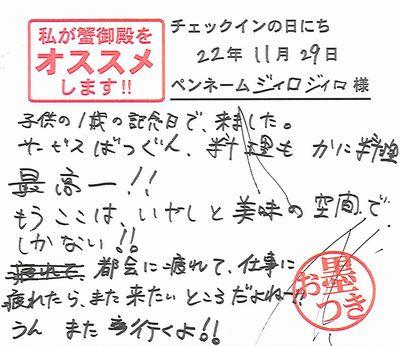 私が蟹御殿を
オススメ
します!!
チェックインの日にち
22年 11月 29日
ペンネーム ジィロジィロ 様
子供の1歳の記念日で、来ました。
サービスばつぐん、料理も かに料理
最高ー!!
もうここは、いやしと美味の空間で
しかない!!
都会に疲れて、仕事に
疲れたら、また来たいところだよねー!!
うん また行くよ!!
お墨
つき